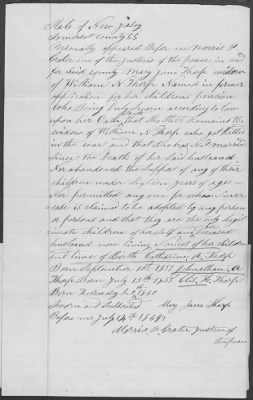 State of New Jersey
Somerset County SS
Personally appeared Before me Morris H
Crater one of the Justices of the peace in and
for said County Mary Jane Thorp widow
of William N Thorp Named in former
application for her childrens pension
who Being Duly Sworn according to law
upon her Oath saith that she still remains the
widow of William N Thorp who got killed
in the war and that she has Not married
Since the Death of her said husband
Nor abandoned the Support of any of their
children under Sixteen years of age
Nor permitted any one for whom increase
is claimed to be adopted by any person
or persons and that they are the only legit
imate children of her self and Deceased
husband now living Names of her childr
and time of birth Catharine A. Thorp
Born September 1st 1851 Johnathan A
Thorp Born July 15th 1855 H. Thorp
Born February 1860
Sworn and Subscribed Mary Jane Thorp
Before me July 14th 1868
Morris H Crater Justice of
the peace